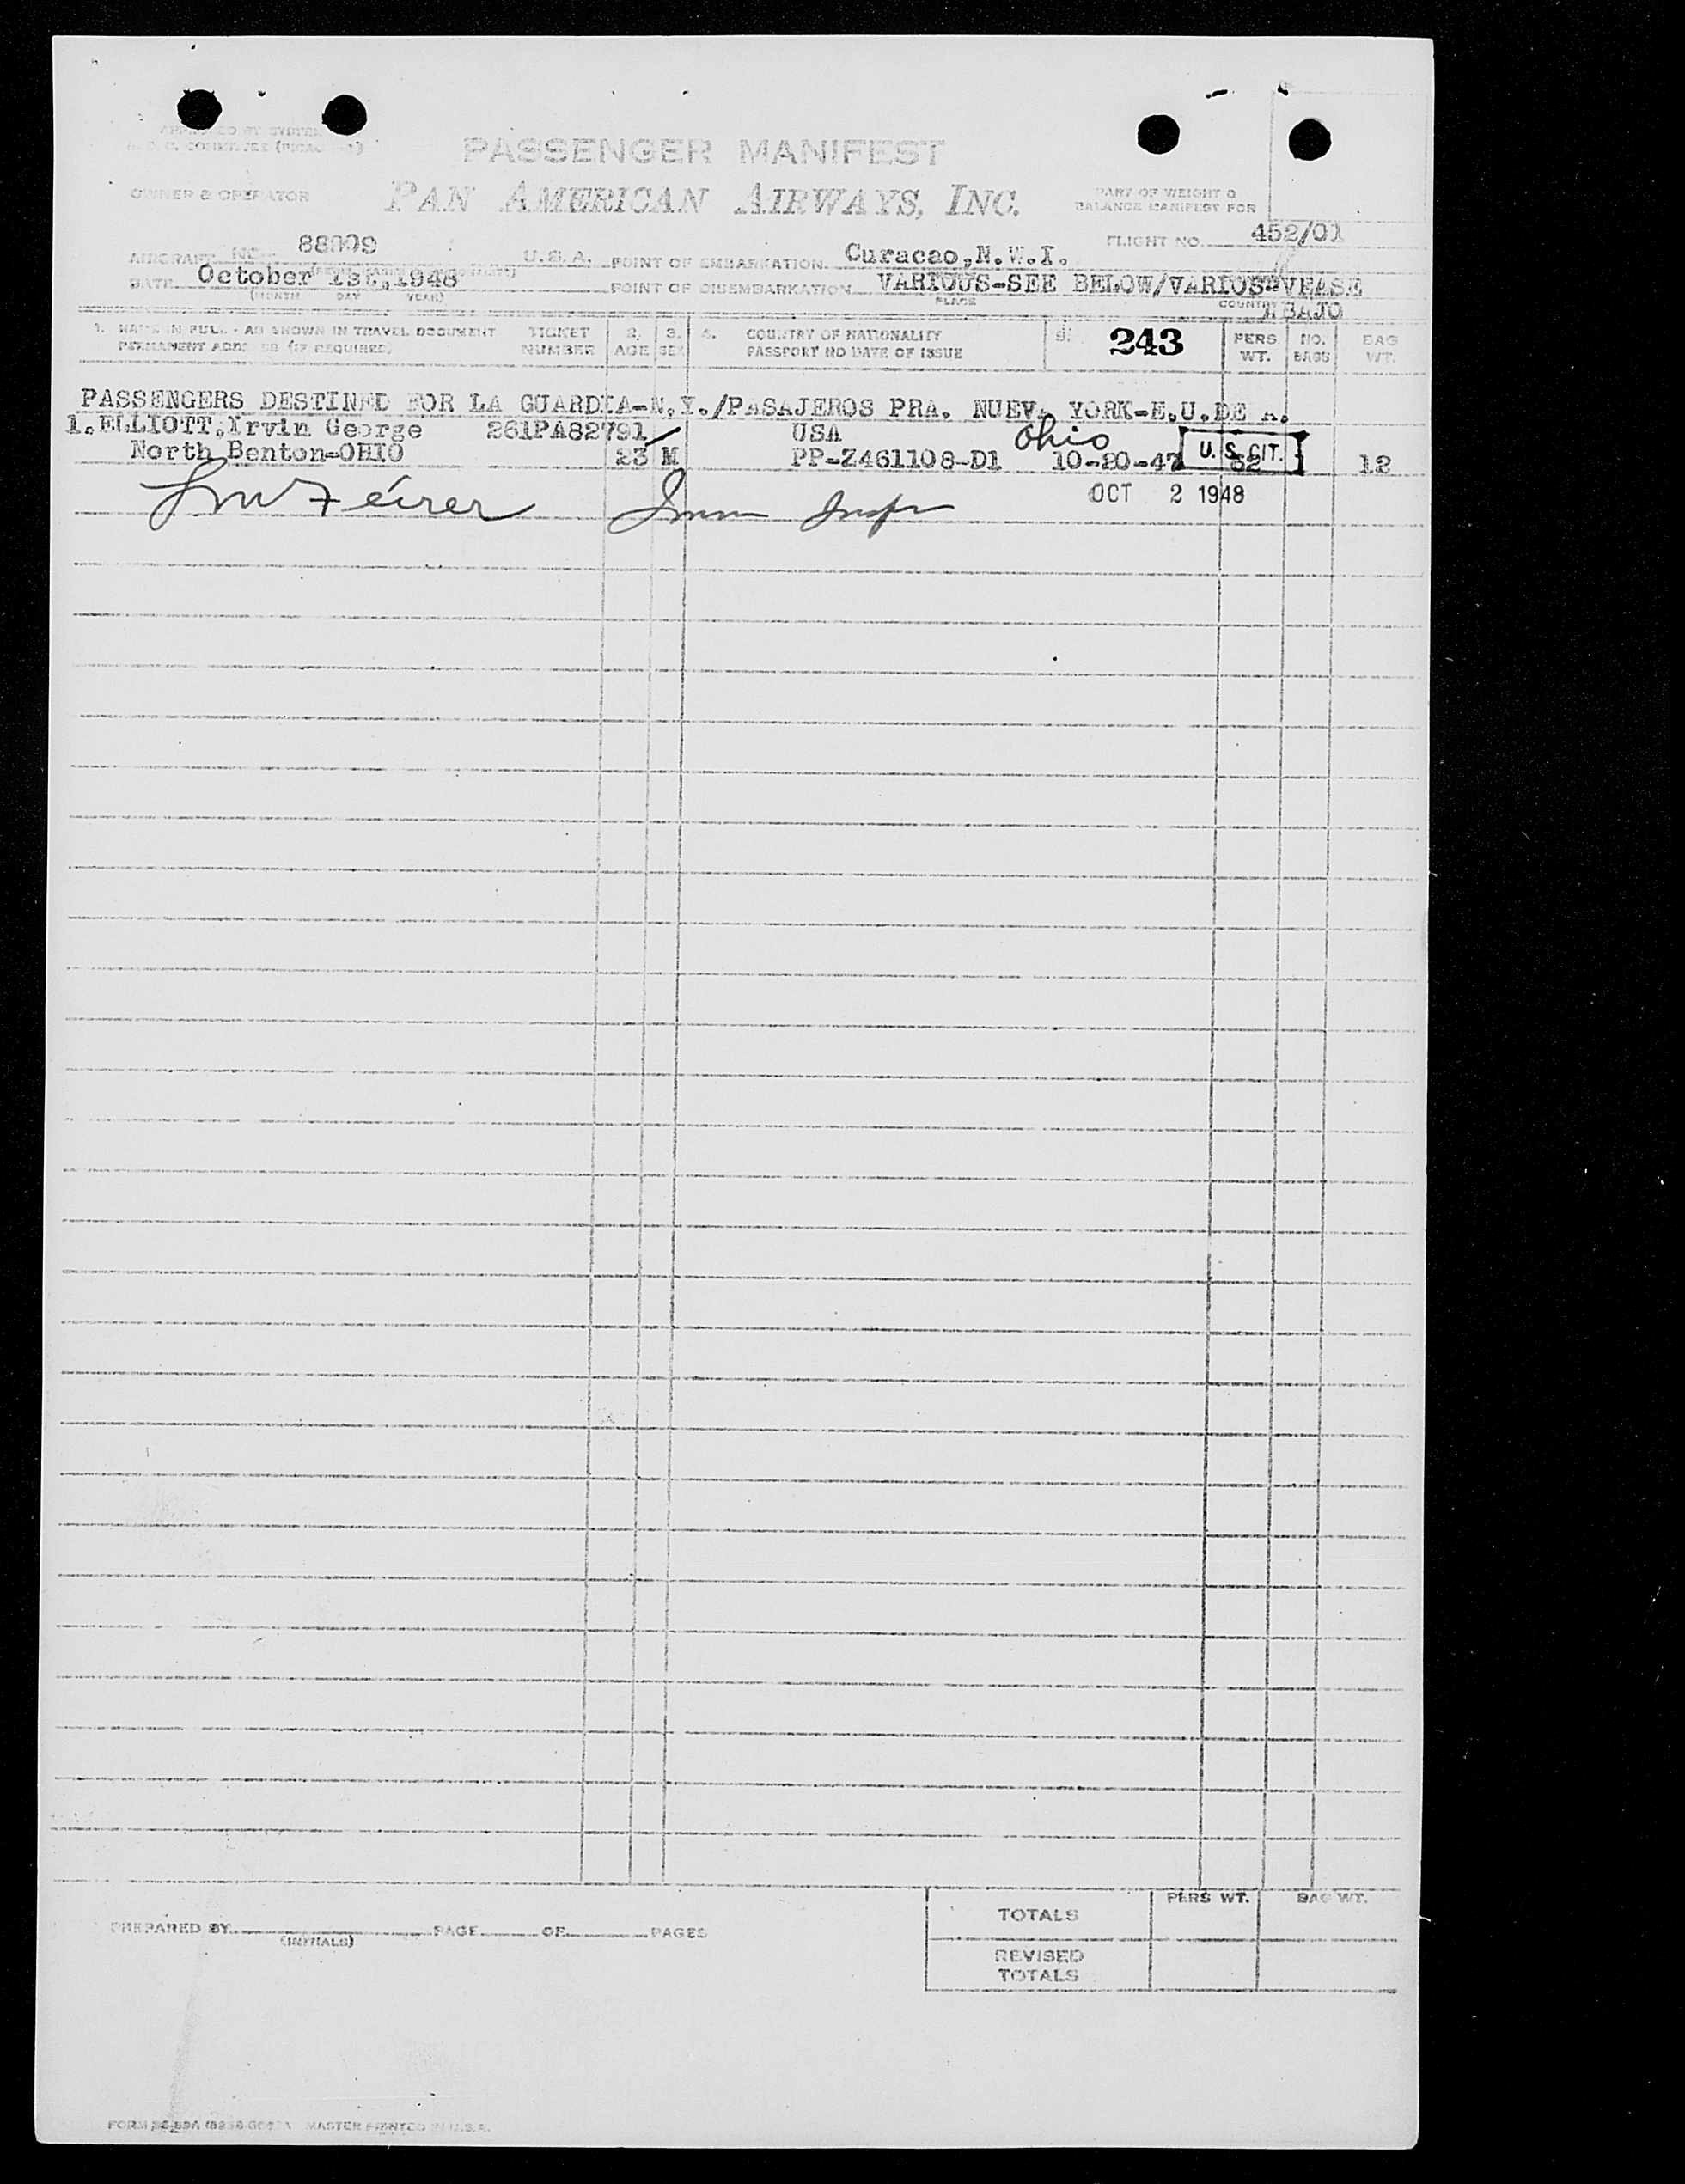 PASSENGER MANIFEST
OWNER & OPERATOR PAN AMERICAN AIRWAYS, INC. PART OF WEIGHT &
BALANCE MANIFEST FOR
FLIGHT NO. 452/01
AIRCRAFT NC 88009 U.S.A. POINT OF EMBARKATION Curacao,N.W.I.
DATE October 1st,1948 POINT OF DISEMBARKATION VARIOUS-SEE BELOW/VARIOS-VEASE
(MONTH DAY YEAR) PLACE COUNTRY
ABAJO
1. NAME IN FULL - AS SHOWN IN TRAVEL DOCUMENT TICKET 2. 3. 4. COUNTRY OF NATIONALITY 5. 243 PERS. NO. BAG
PERMANENT ADDRESS (IF REQUIRED) NUMBER AGE SEX PASSPORT NO DATE OF ISSUE WT. BAGS WT.
PASSENGERS DESTINED FOR LA GUARDIA-N.Y./PASAJEROS PRA. NUEVA YORK-E.U.DE A.
1.ELLIOTT,Irvin George 261PA82791 USA Ohio
North Benton-OHIO 23 M PP-Z461108-D1 10-20-47 U. S. CIT. 62 1 12
Imm Inspr OCT 2 1948
TOTALS PERS WT. BAG WT.
PREPARED BY (INITIALS) PAGE OF PAGES
REVISED
TOTALS
MASTER PRINTED IN U.S.A.